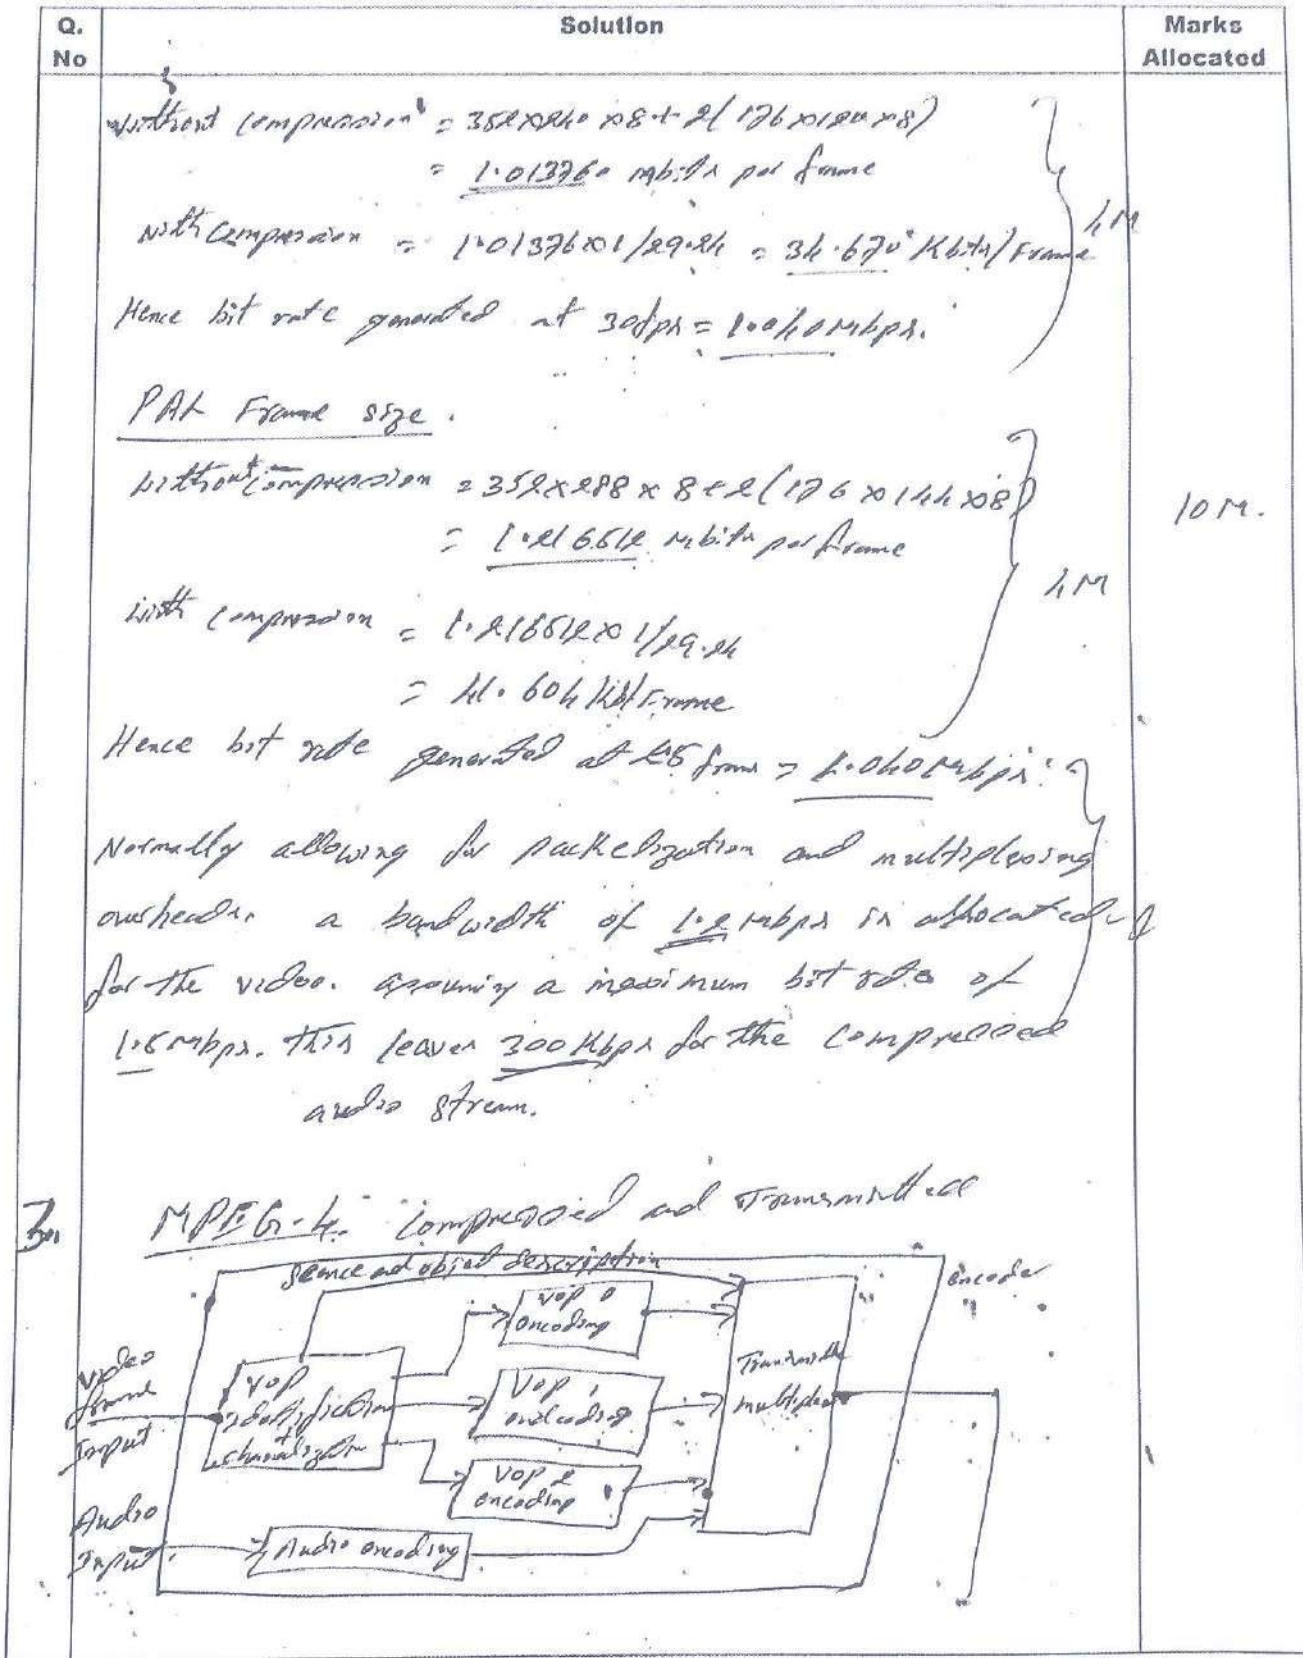 Q. No
Solution
Marks Allocated
without compression = 352×240 ×8 + 2(176×120×8)
= 1.013760 mbits per frame
with compression = 1.01376×1/29.24 = 34.670 Kbits/Frame
4M
Hence bit rate generated at 30fps = 1.040 Mbps.
PAL Frame size.
without compression = 352×288×8+2(176×144×8)
= 1.216512 Mbits per frame
10M.
4M
with compression = 1.216512×1/29.24
= 41.604 Kb/Frame
Hence bit rate generated at 25 frms = 1.040 Mbps.
Normally allowing for packetization and multiplexing
overheads. a bandwidth of 1.2 Mbps is allocated
for the video. assuming a maximum bit rate of
1.5 Mbps. this leaves 300 Kbps for the compressed
audio stream.
3.
MPEG-4. Compressed and Transmitted
Scence and object description
encoder
VOP 0
encoding
Video
frame
Input
VOP
VOP 1
encoding
Transmitte
multiplexer
VOP 2
encoding
Audio
Input.
Audio encoding